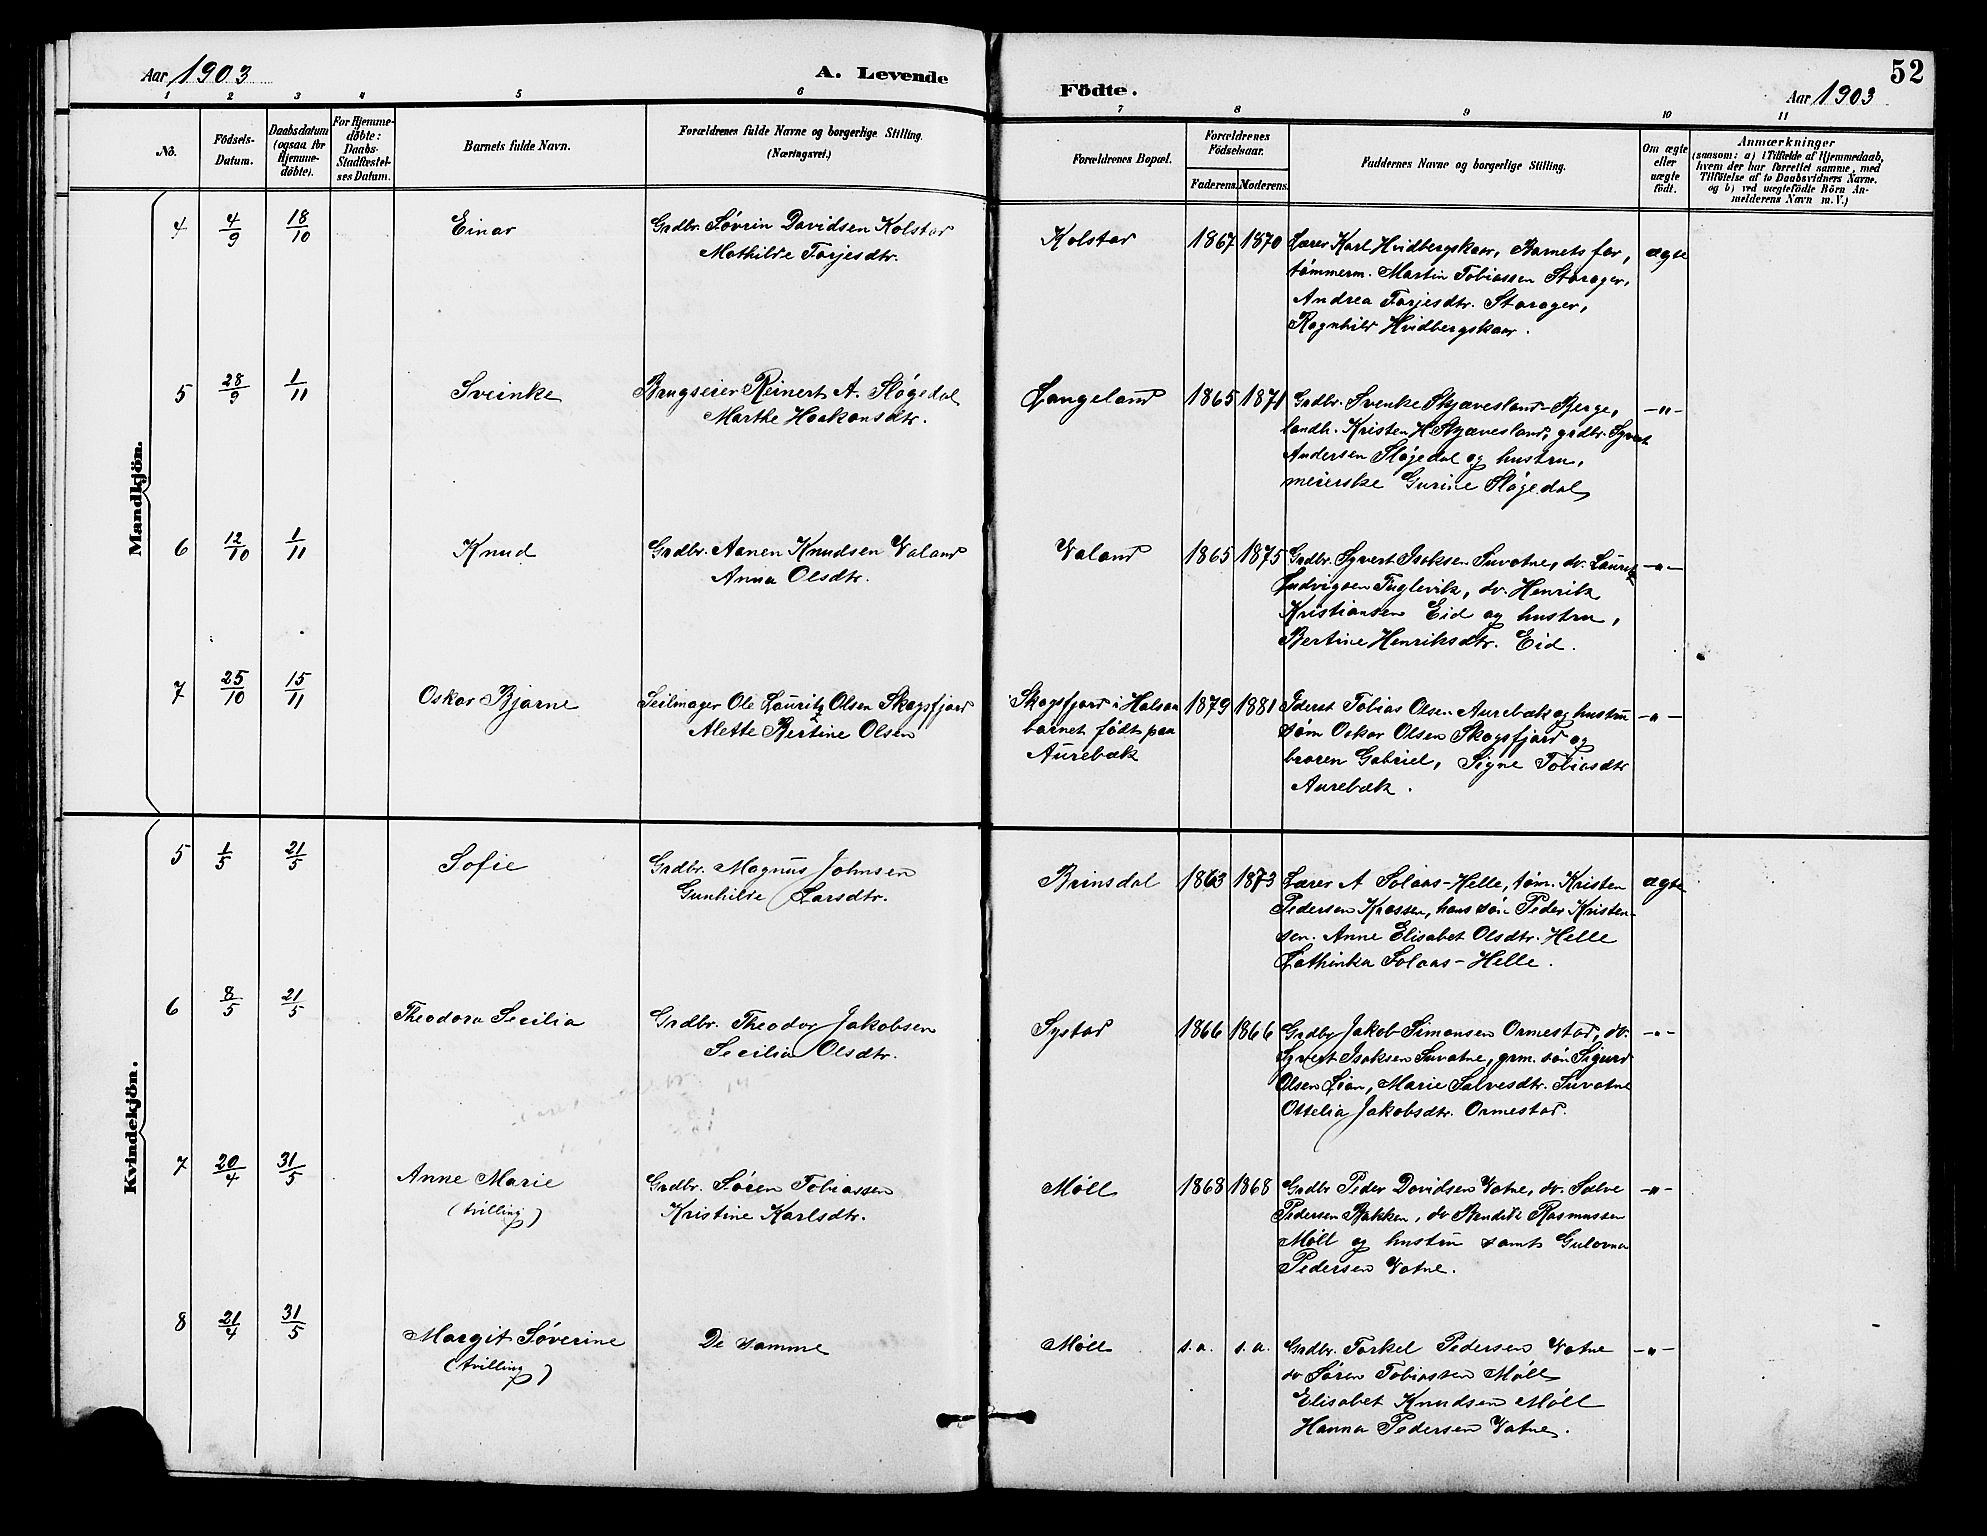 Aar 1903
A. Levende
Födte.
Aar 1903
52
1 2 3 4 5 6 7 8 9 10 11
No.
Födsels-Datum.
Daabsdatum (ogsaa for Hjemme-döbte).
For Hjemme-döbte: Daabs-Stadfæstel-ses Datum.
Barnets fulde Navn.
Forældrenes fulde Navne og borgerlige Stilling.
(Næringsvei.)
Forældrenes Bopæl.
Forældrenes Födselsaar.
Faderens. Moderens.
Faddernes Navne og borgerlige Stilling.
Om ægte eller uægte født.
Anmærkninger
(saasom: a) i Tilfælde af Hjemmedaab,
hvem der har forrettet samme, med
Tilföielse af to Daabsvidners Navne.
og b) ved uægtefödte Börn An-
melderens Navn m. V.)
Mandkjön.
4 4/9 18/10 Einar Grdbr. Søvrin Davidsen Kolstad Kolstad 1867 1870 Lærer Karl Hvidbergskaar, Barnets far, ægte
Mathilde Torjesdtr. tømmerm. Martin Tobiassen Storager,
Andrea Torjesdtr. Storager,
Ragnhild Hvidbergskaar.
5 28/9 1/11 Sveinke Brugseier Reinert A. Sløgedal Langeland 1865 1871 Grdbr. Svenke Skjævesland-Berge, -"-
Marthe Haakonsdtr. landh. Kristen H. Skjævesland, grdbr. Syvert
Andersen Sløgedal og hustru,
meierske Gurine Sløgedal
6 12/10 1/11 Knud Grdbr. Aanen Knudsen Valand Valand 1865 1875 Grdbr. Syvert Isaksen Suvatne, do. Lauritz -"-
Anna Olsdtr. Ludvigsen Fuglevik, do. Henrik
Kristiansen Eid og hustru,
Bertine Henriksdtr. Eid.
7 25/10 15/11 Oskar Bjarne Seilmager Ole Lauritz Olsen Skogsfjord Skogsfjord i Halsaa 1879 1881 Føderst Tobias Olsen Aurebæk og hustru -"-
Alette Bertine Olsen barnet født paa søm Oskar Olsen Skogsfjord og
Aurebæk broren Gabriel, Signe Tobiasdtr
Aurebæk.
Kvindekjön.
5 1/5 21/5 Sofie Grdbr. Magnus Johnsen Brinsdal 1863 1873 Lærer A Solaas-Helle, tøm. Kristen ægte
Gunhilde Larsdtr. Pedersen Krossen, hans søn Peder Kristen-
sen. Anne Elisabet Olsdtr. Helle
Kathinka Solaas-Helle.
6 8/5 21/5 Theodora Secilia Grdbr. Theodor Jakobsen Systad 1866 1866 Grdbr Jakob Simonsen Ormestad, do. -"-
Secilia Olsdtr. Syvert Isaksen Suvatne, grm. søn Sigurd
Olsen Lian, Marie Salvesdtr. Suvatne
Ottelia Jakobsdtr. Ormestad.
7 20/4 31/5 Anne Marie Grdbr. Søren Tobiassen Møll 1868 1868 Grdbr Peder Davidsen Vatne, do. Salve -"-
(tvilling) Kristine Karlsdtr. Pedersen Bakken, do Bendik Rasmussen
Møll og hustru samt Gulovna
Pedersen Vatne.
8 21/4 31/5 Margit Søverine De samme Møll s.a. s.a. Grdbr. Torkel Pedersen Vatne -"-
(tvilling) do Søren Tobiassen Møll
Elisabet Knudsen Møll
Hanna Pedersen Vatne.